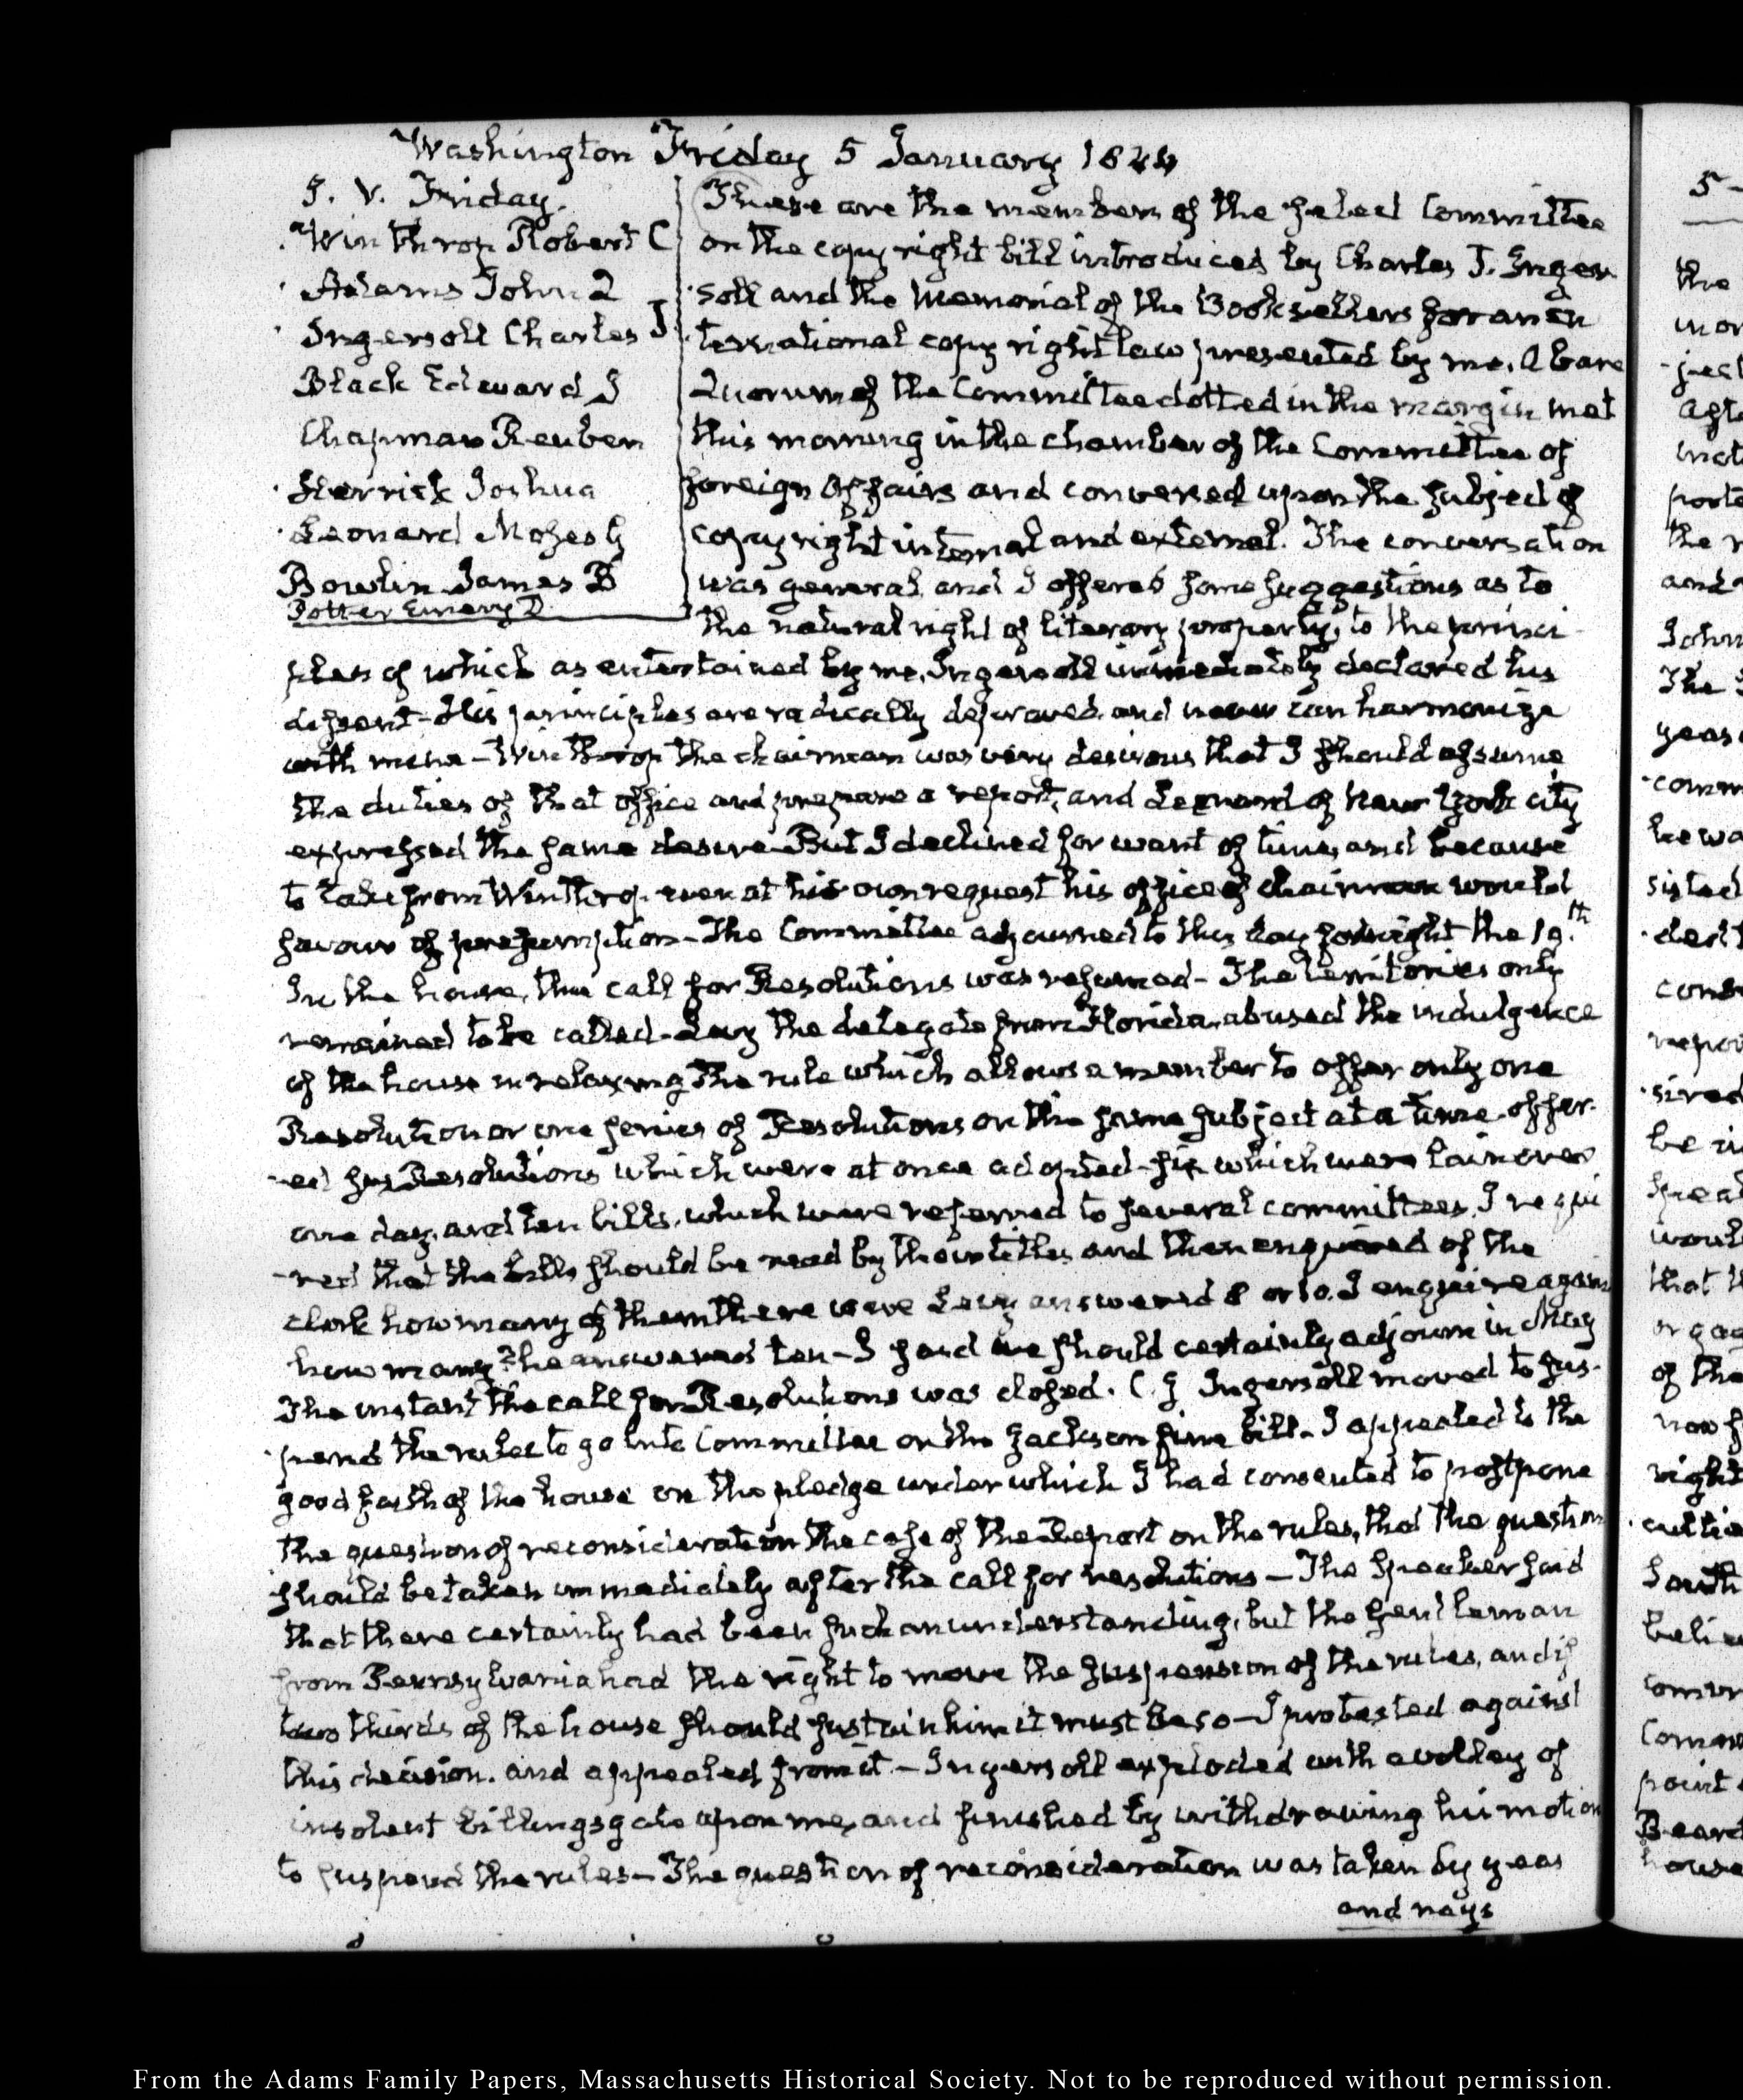 Washington Friday 5 January 1844
5. V. Friday.
Winthrop Robert C
Adams John Q
Ingersoll Charles J
Black Edward J
Chapman Reuben
Herrick Joshua
Leonard Moses G
Bowlin James B
Potter Emery D.
These are the members of the select Committee
on the copy right bill introduced by Charles J. Inger
soll and the Memorial of the Booksellers for an In
ternational copy right law presented by me. A bare
Quorum of the Committee dotted in the margin met
this morning in the chamber of the Committee of
foreign Affairs and conversed upon the subject of
copy right internal and external. The conversation
was general, and I offered some suggestions as to
the natural right of literary property, to the princi-
ples of which as entertained by me, Ingersoll immediately declared his
dissent - His principles are radically depraved, and never can harmonize
with mine - Winthrop the chairman was very desirous that I should assume
the duties of that office and prepare a report, and Leonard of New York city
expressed the same desire - But I declined for want of time, and because
to take from Winthrop even at his own request his office of chairman would
savour of presumption - The Committee adjourned to this day fortnight the 19.th
In the house, the call for Resolutions was resumed - The territories only
remained to be called - Levy the delegate from Florida, abused the indulgence
of the house in relaxing the rule which allows a member to offer only one
Resolution or one series of Resolutions on the same subject at a time - offer-
-ed Resolutions which were at once adopted - six which were laid over
one day, and ten bills, which were referred to several committees. I requi
-red that the bills should be read by their titles, and then enquired of the
clerk how many of them there were Levy answered 8 or 10. I enquire again
how many? he answered ten - I said we should certainly adjourn in May
The instant the call for Resolutions was closed. C. J. Ingersoll moved to sus-
-pend the rules to go into Committee on the Jackson fine bill - I appealed to the
good faith of the house on the pledge under which I had consented to postpone
the question of reconsideration in the case of the Report on the rules, that the question
should be taken immediately after the call for resolutions - The Speaker said
that there certainly had been such an understanding, but the gentleman
from Pennsylvania had the right to move the suspension of the rules, and if
two thirds of the house should sustain him it must be so - I protested against
this decision. and appealed from it. - Ingersoll exploded with a volley of
insolent billingsgate upon me, and finished by withdrawing his motion
to suspend the rules - The question of reconsideration was taken by yeas
and nays
5 -
the
years
From the Adams Family Papers, Massachusetts Historical Society. Not to be reproduced without permission.